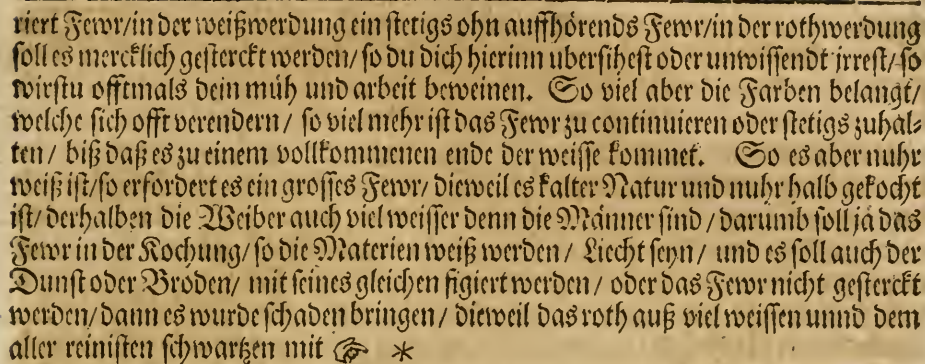 riert Fewr/in der weißwerdung ein stetigs ohn auffhörends Fewr/in der rothwerdung
soll es mercklich gestercket werden/so du dich hierinn ubersihest oder unwissendt irrest/so
wirstu offtmals dein müh und arbeit beweinen. So viel aber die Farben belangt/
welche sich offt verendern/ so viel mehr ist das Fewr zu continuieren oder stetigs zuhal⸗
ten/ biß daß es zu einem vollkommenen ende der weisse kommet. So es aber nuhr
weiß ist/so erfordert es ein grosses Fewr/ dieweil es kalter Natur und nuhr halb gekocht
ist/ derhalben die Weiber auch viel weisser denn die Männer sind/ darumb soll ja das
Fewr in der Kochung/ so die Materien weiß werden/ Liecht seyn/ und es soll auch der
Dunst oder Broden/ mit seines gleichen figiert werden/ oder das Fewr nicht gesterckt
werden/dann es wurde schaden bringen/ dieweil das roth auß viel weissen unnd dem
aller reinisten schwartzen mit ☞ *